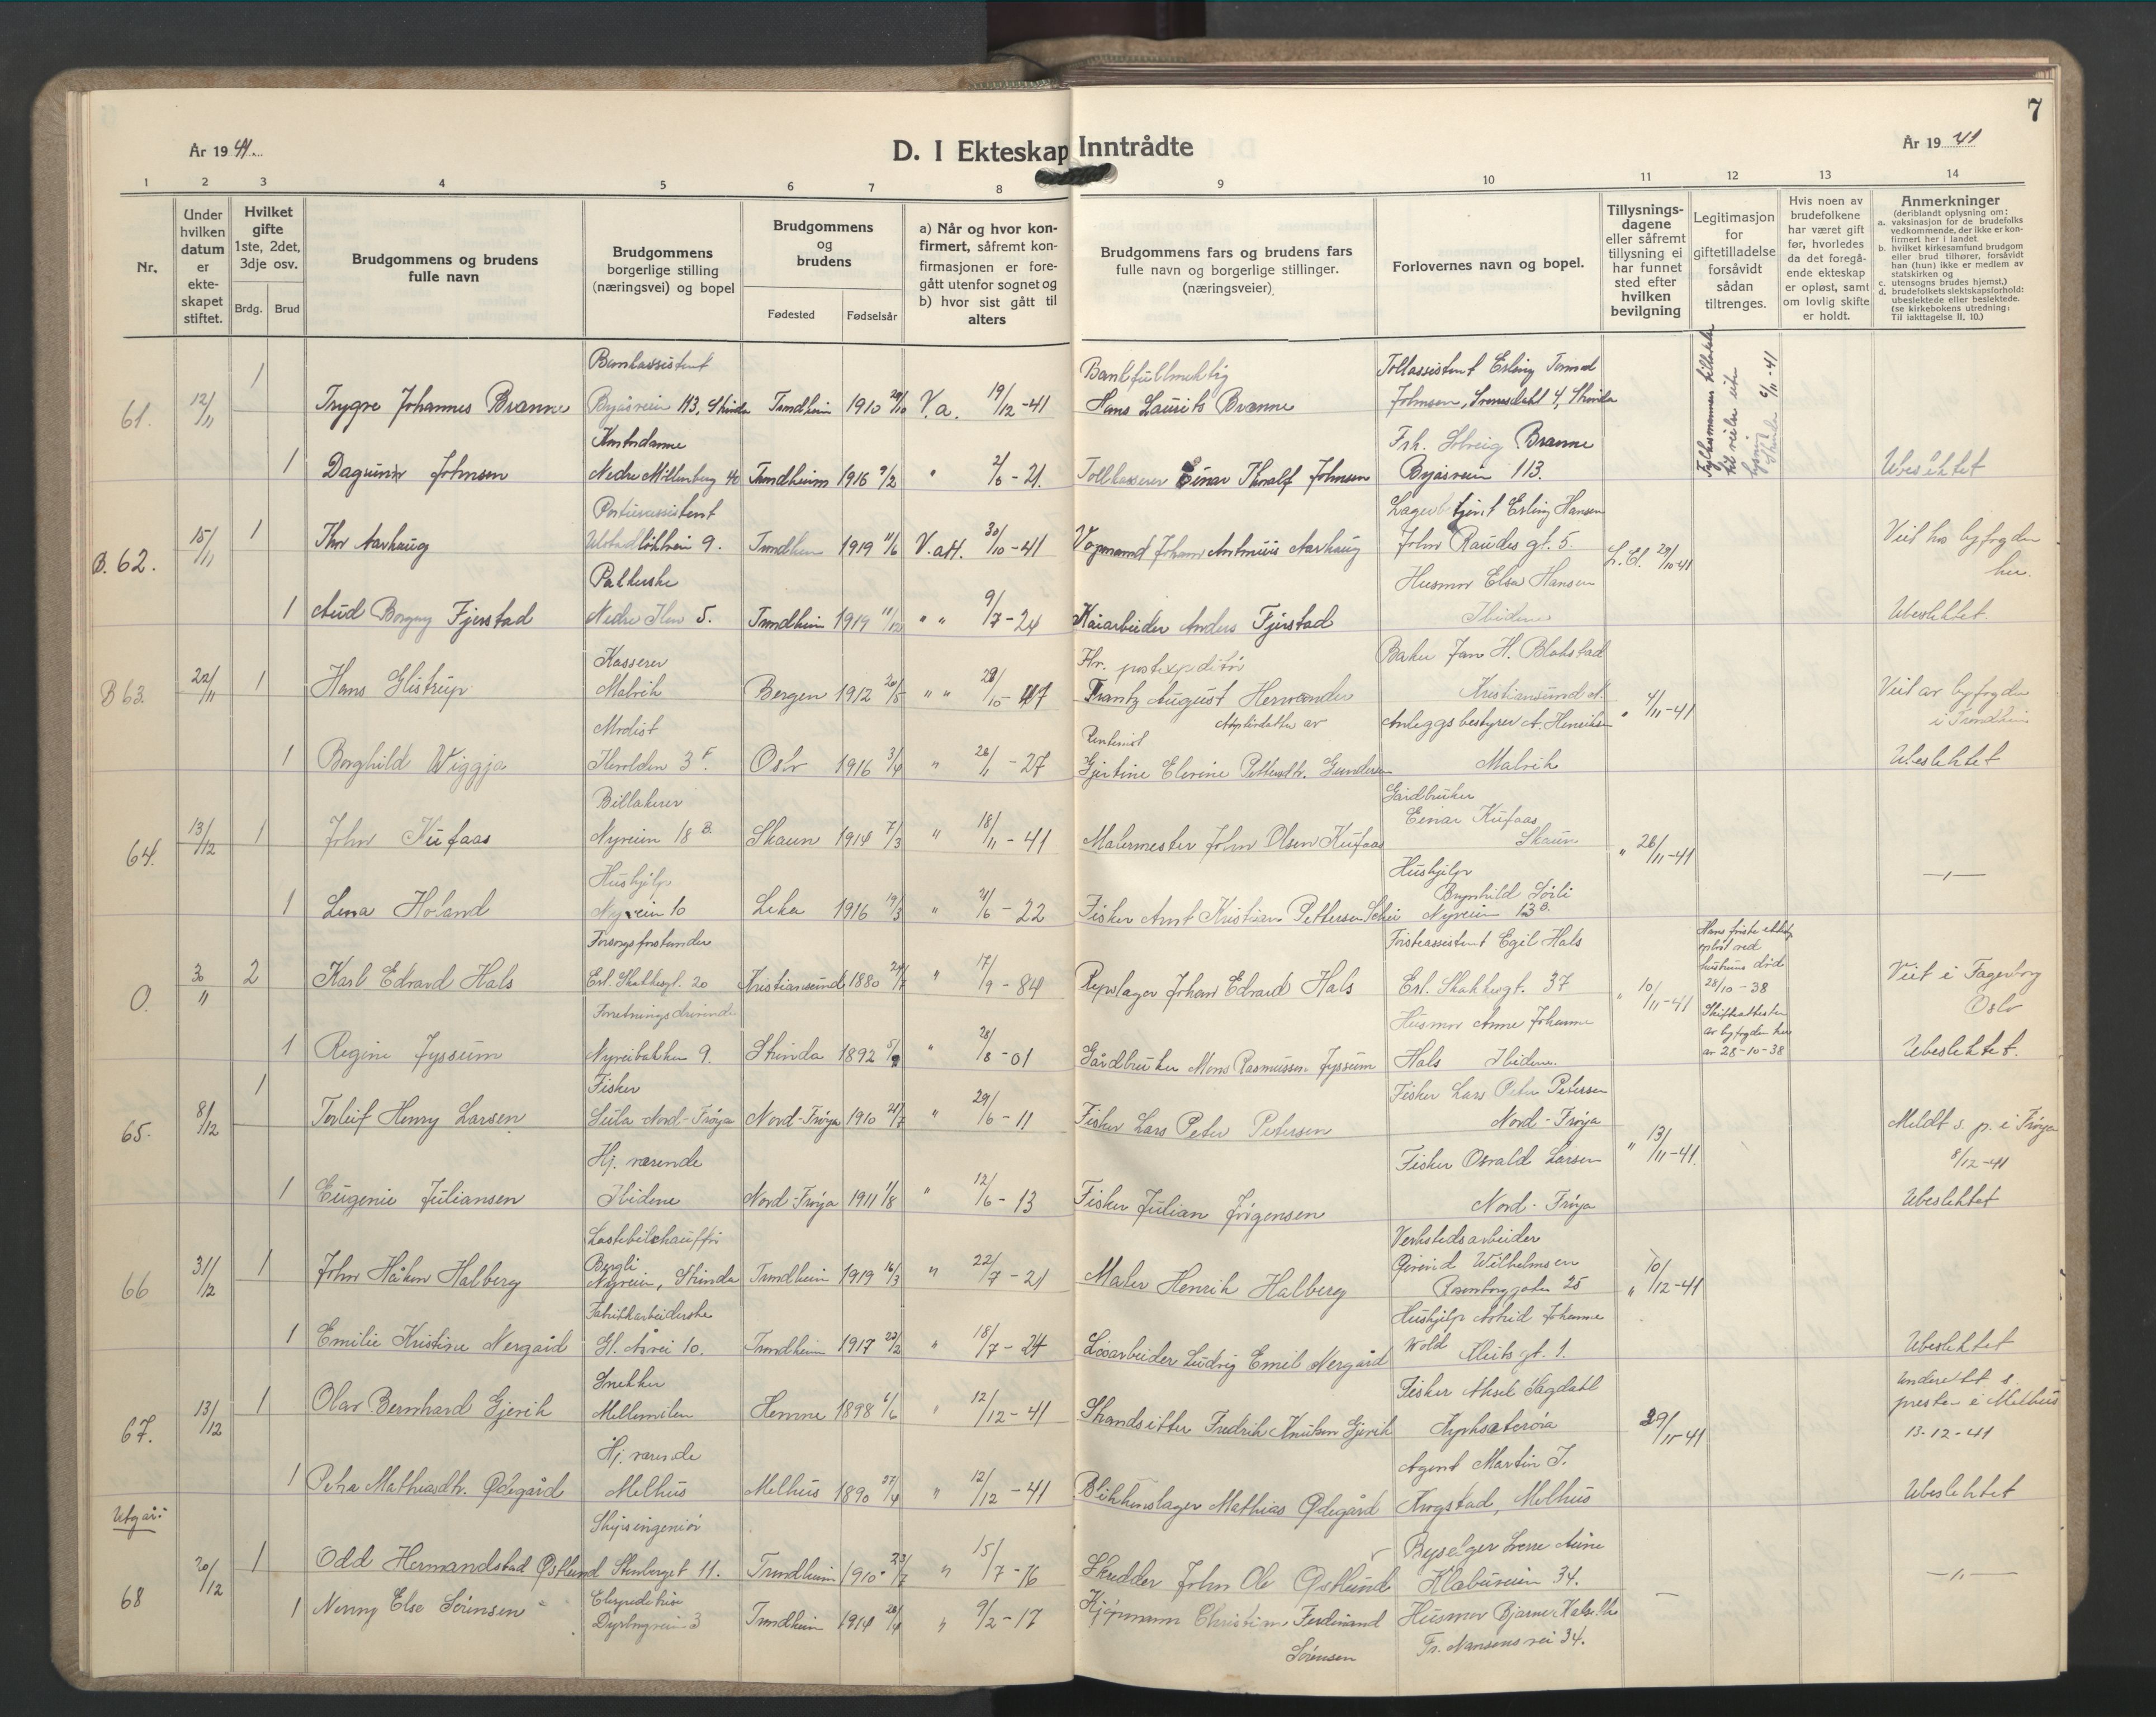 7
År 19 41.
D. I Ekteskap Inntrådte
År 19 41
1 2 3 4 5 6 7 8 9 10 11 12 13 14
Nr.
Under hvilken datum er ekte-skapet stiftet.
Hvilket gifte 1ste, 2det, 3dje osv.
Brdg. Brud
Brudgommens og brudens fulle navn
Brudgommens borgerlige stilling (næringsvei) og bopel
Brudgommens og brudens
Fødested Fødselsår
a) Når og hvor kon-firmert, såfremt kon-firmasjonen er fore-gått utenfor sognet og
b) hvor sist gått til alters
Brudgommens fars og brudens fars fulle navn og borgerlige stillinger. (næringsveier)
Forlovernes navn og bopel.
Tillysnings-dagene eller såfremt tillysning ei har funnet sted efter hvilken bevilgning
Legitimasjon for giftetilladelse forsåvidt sådan tiltrenges.
Hvis noen av brudefolkene har været gift før, hvorledes da det foregå-ende ekteskap er opløst, samt om lovlig skifte er holdt.
Anmerkninger
(deriblandt oplysning om:
a. vaksinasjon for de brudefolks vedkommende, der ikke er kon-firmert her i landet
b. hvilket kirkesamfund brudgom eller brud tilhører, forsåvidt han (hun) ikke er medlem av statskirken og
c. utensogns brudes hjemst.)
d. brudefolkets slektskapsforhold: ubeslektede eller beslektede.
(se kirkebokens utredning: Til iakttagelse II, 10.)
Bankassistent Bankfullmektig Tollassistent Erling Tormod
61. 12/11 1 Trygve Johannes Brænne Byåsveien 113, Strinda Trondheim 1910 V.a. 19/12-41 Hans Laurits Brænne Johnsen, 4, Strinda
Kontordame Frk. Solveig Brænne
1 Dagunn Johnsen Nedre Møllenberg 40 Trondheim 1916 9/2 " 2/6-21. Tollkasserer Einar Thoralf Johnsen Byåsveien 113. Ubeslektet
Portierassistent Erling Hansen
B. 62. 15/11 1 Thor Aarhaug 9. Trondheim 1919 11/6 V. att. 30/10-41 Vognmand Johan Antonius Aarhaug John Raudes gt. 5. L. El. 29/10-41 Viet hos byfogden her.
Husmor Elsa Hansen
1 Aud Borgny Fjerstad Nedre Ilen 5. Trondheim 1919 " " 9/7-24 Kaiarbeider Anders Fjerstad Ibidem Ubeslektet.
Kasserer Fhv. postexpeditør Baker H. Blakstad
B 63. 22/11 1 Hans Glistrup Malvik Bergen 1912 20/5 " " Frantz August Kristiansund N. " 4/11-41 Viet av byfogden i Trondheim
Modist Rentenist Adoptivdatter av Anleggsbestyrer A. Henriksen
1 Borghild Wiggja Ilevolden 3 F. Oslo 1916 3/4 " 26/1-27 Gjertine Elevine Pettersdtr. Gundersen Malvik Ubeslektet
Billakerer Gårdbruker
64. 13/12 1 John Kufaas Nyveien 18 B. Skaun 1914 7/3 " 18/11-41 Malermester John Olsen Kufaas Einar Kufaas Skaun " 26/11-41
Hushjelp Hushjelp
1 Lena Holand Nyveien 10 Leka 1916 19/3 " 21/6-22 Fisker Arnt Kristian Pettersen Brynhild Sørli Nyveien 13 B. —"—
Forsorgsforstander Egil Hals
0. 30/11 2 Karl Edvard Hals Erl. Skakkesgt. 20 Kristiansund 1880 24/7 " 17/9-84 Repslager Johan Edvard Hals Erl. Skakkesgt. 37 " 10/11-41 Viet i Fagerborg Oslo
Hans første ektesk. opløst ved hustrus død 28/10-38 Skifteattesten av byfogden her av 28-10-38
Forretningsdrivende Husmor Anne Johanne
1 Regine Jyssum Nyveibakken 9. Strinda 1892 " 28/8-01 Gårdbruker Mons Rasmussen Jyssum Hals Ibidem. Ubeslektet.
Fisker Fisker Lars Peter Petersen
65. 8/12 1 Torleif Henry Larsen Sula Nord-Frøya Nord-Frøya 1910 21/7 " 29/6-11 Fisker Lars Peter Petersen Nord-Frøya " 13/11-41. Meldt s. p. i Frøya 8/12-41
Hj. værende Fisker Osvald Larsen
1 Eugenie Juliansen Ibidem Nord-Frøya 1911 1/8 " 12/6-13 Fisker Julian Jørgensen Nord-Frøya Ubeslektet
Lastebilchauffør Verkstedsarbeider
66 31/12 1 John Håkon Halberg Bergli Nyveien, Strinda Trondheim 1919 16/3 " 22/7-21 Maler Henrik Halberg Øivind Wilhelmsen Rosenborggaten 25 " 10/12-41
Fabrikkarbeiderske Hushjelp Astrid Johanne
1 Emilie Kristine Nergård Gl. Åsvei 10. Trondheim 1917 22/2 " 18/7-24 Løsarbeider Ludvig Emil Nergård Wold gt. 1. Ubeslektet
Snekker Fisker Aksel Sagdahl
67. 13/12 1 Olav Bernhard Gjevik Mellemilen Hemne 1898 6/6 " 12/12-41 Strandsitter Fredrik Knutsen Gjevik Kyrksæterøra 29/11-41 Underrettet s. presten i Melhus 13-12-41
Hj. værende Agent Martin J.
1 Petra Mathiasdtr. Ødegård Melhus Melhus 1890 27/4 " 12/12-41 Blikkenslager Mathias Ødegård Krogstad, Melhus Ubeslektet
Utgår: Skipsingeniør Byselger Sverre Aune
68 20/12 1 Odd Hermandstad Østlund Steinberget 11. Trondheim 1910 23/7 " 15/7-16 Skredder John Ole Østlund Klæbuveien 34. —"—
1 Nenny Else Sørensen Dyrborgveien 3 Trondheim 1914 28/4 " 9/2-17 Kjøpmann Christian Ferdinand Sørensen Husmor Bjarne Fr. Nansens vei 34. —